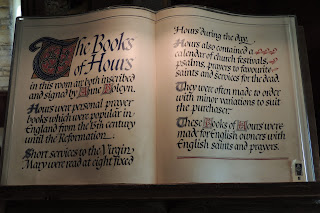 The Books
of Hours
in this room are both inscribed
and signed by Anne Boleyn.
Hours were personal prayer
books which were popular in
England from the 13th century
until the Reformation.
Short services to the Virgin
Mary were read at eight fixed
Hours during the day.
Hours also contained a
calendar of church festivals,
psalms, prayers to favourite
saints and services for the dead.
They were often made to order
with minor variations to suit
the purchaser.
These Books of Hours were
made for English owners with
English saints and prayers.